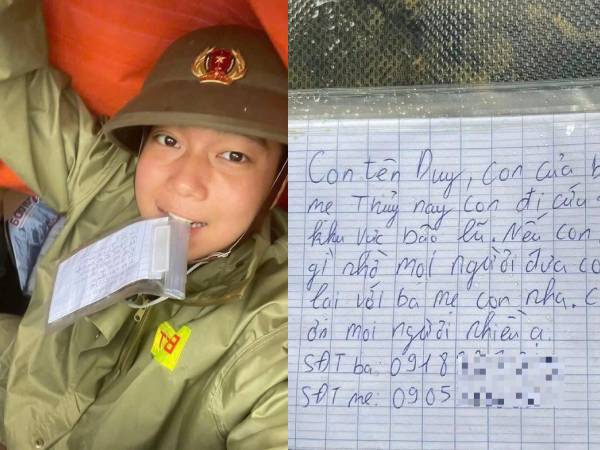 Con tên Duy, con của b
mẹ Thủy nay con đi cứu
khu vực bão lũ. Nếu con
gì nhờ mọi người đưa co
lại với ba mẹ con nha. C
ơn mọi người nhiều ạ.
SĐT ba: 0918
SĐT mẹ: 0905